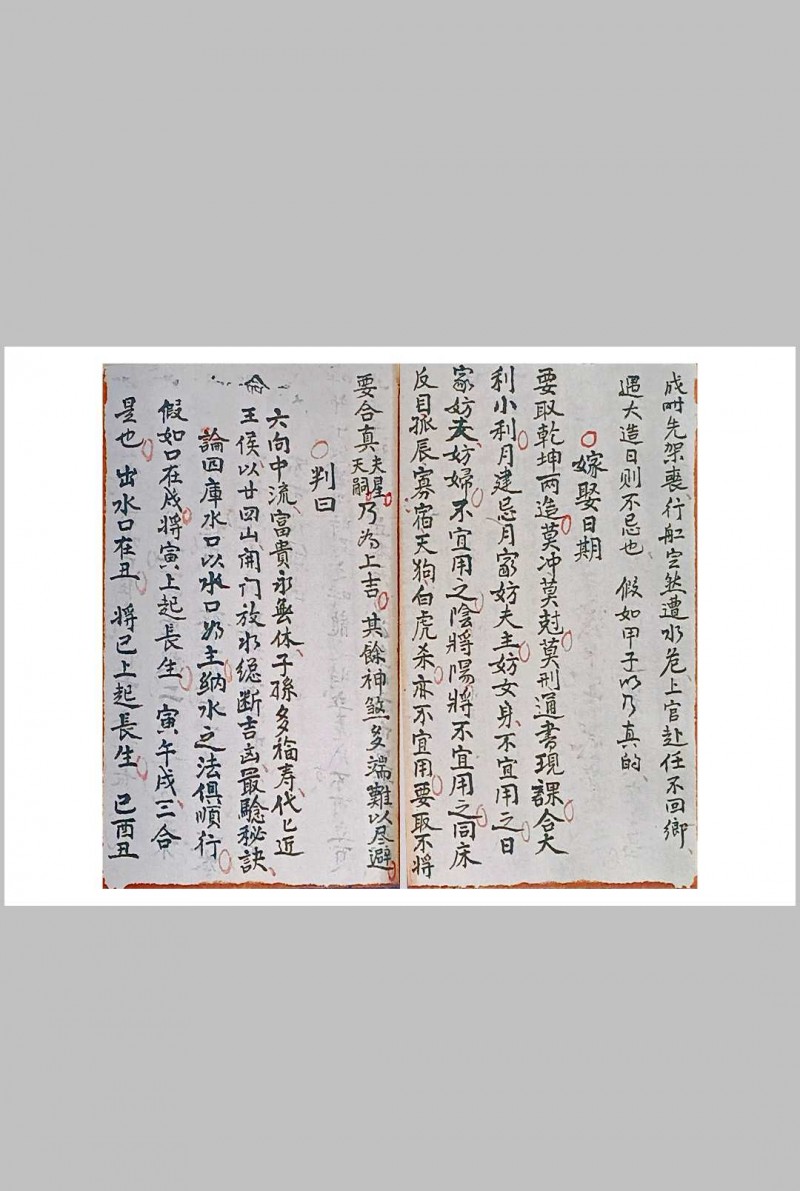 成时先架喪、行船空然遭水危、上官赴任不回鄉、
遇大造日则不忌也 假如甲子以乃真的、
嫁娶日期
要取乾坤两造莫冲莫尅莫刑通書現課合大
利小利月建忌月家妨夫主妨女身、不宜用之日
家妨夫妨婦不宜用之陰將陽將不宜用之同床
反目孤辰寡宿天狗白虎杀亦不宜用要取不将
要合真夫星天嗣乃为上吉 其餘神煞多端難以尽避
判曰
六向中流、富貴永無休、子孫多福寿、代匕近
王侯以廿四山開门放水總断吉凶最驗秘訣、
論四庫水口以水口为主纳水之法俱順行
假如口在戌將寅上起長生 寅午戌三合
是也 出水口在丑 將巳上起長生 巳酉丑